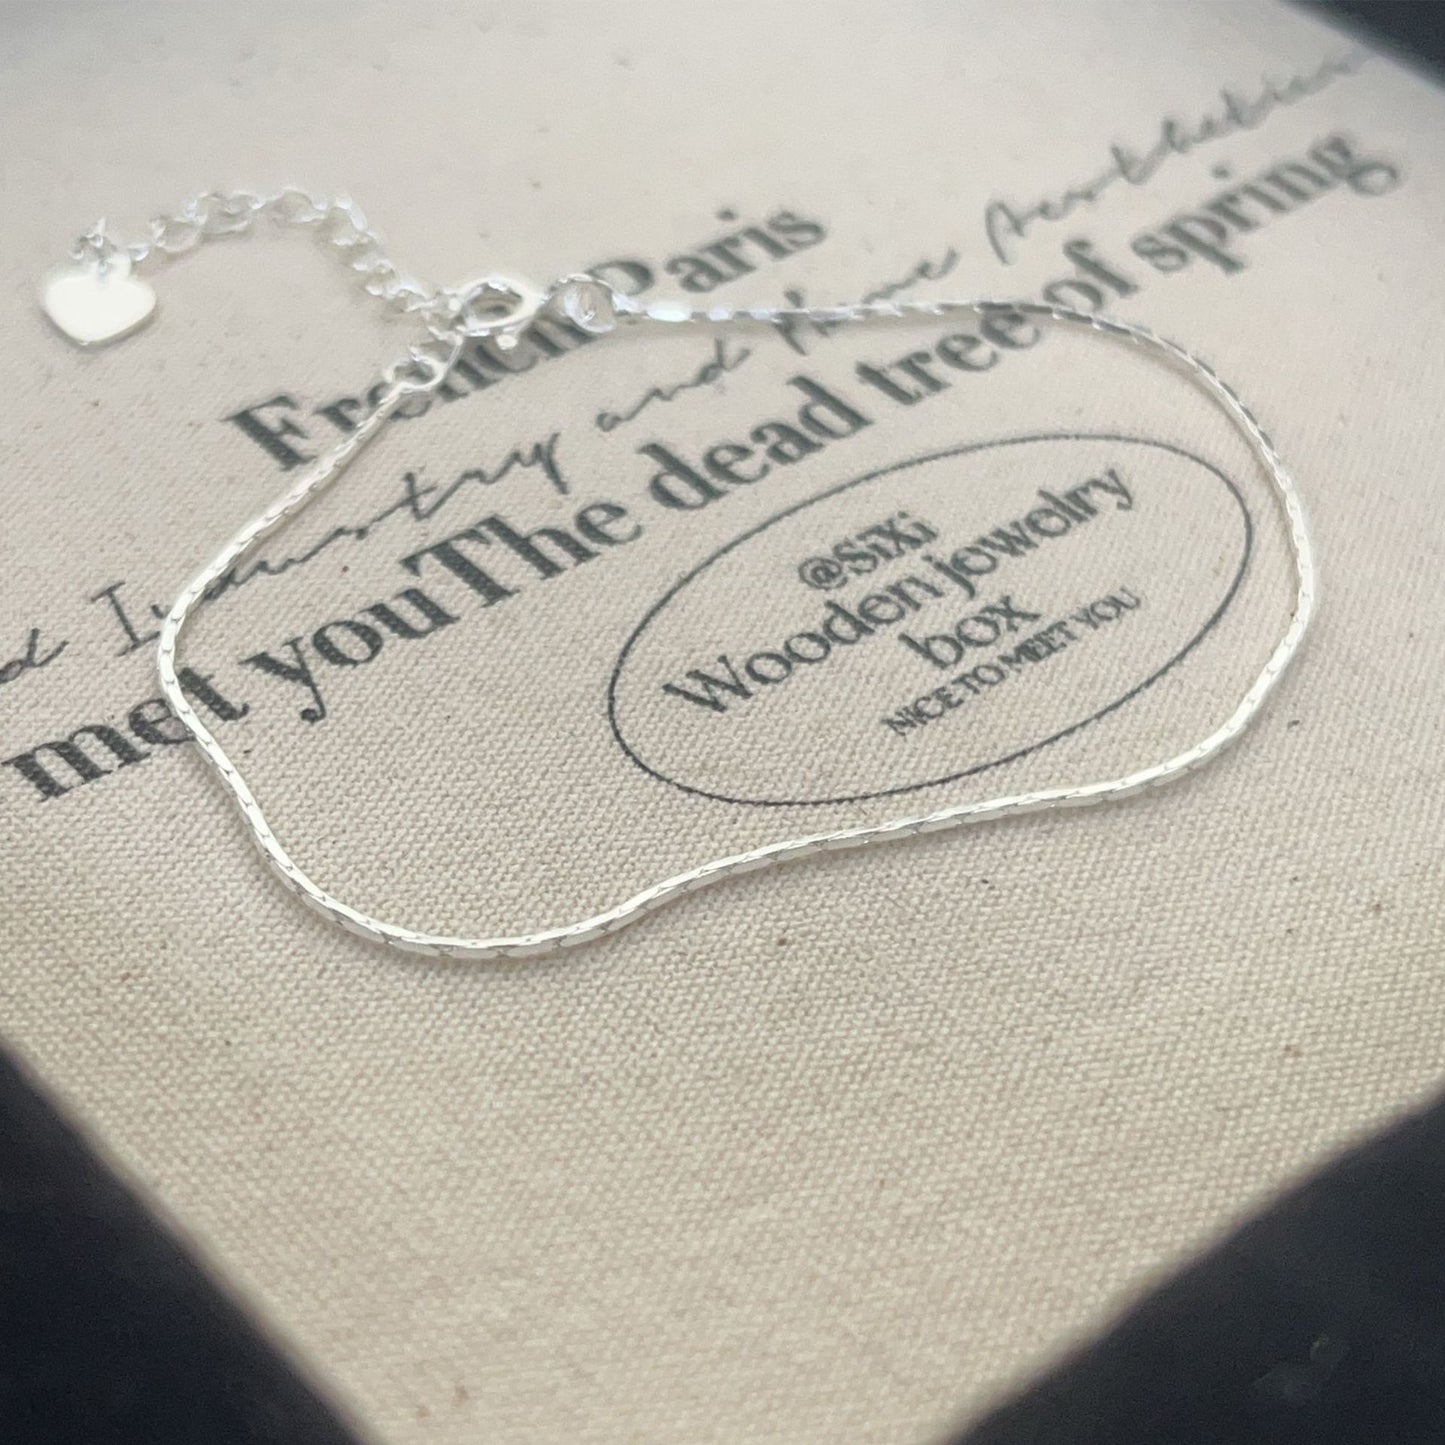 French Paris
Industry and Home Aesthetician
met youThe dead tree of spring
@SiXi
Wooden jewelry
box
NICE TO MEET YOU